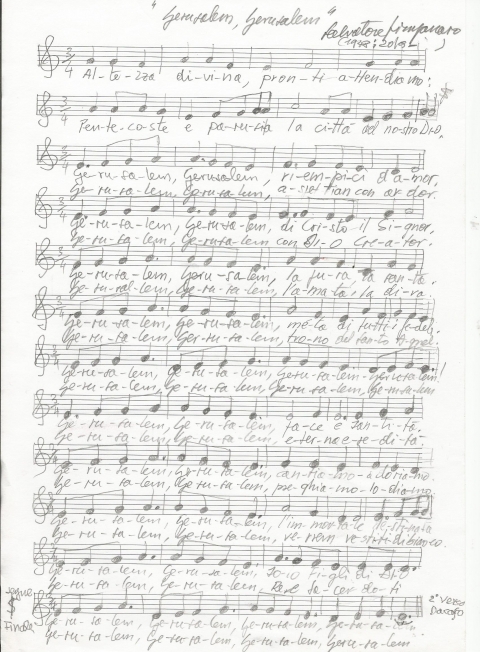 "Gerusalem, Gerusalem"
Salvatore Limpanaro
3/4
Al-te-zza di-vi-na, pron-ti at-ten-dia-mo:
3/4
Pen-te-co-ste e pa-ru-sia la città del no-stro Di-o.
3/4
Ge-ru-sa-lem, Gerusalem, ri-em-pi-ci d'a-mor,
Ge-ru-sa-lem, Ge-ru-sa-lem,
3/4
Ge-ru-sa-lem, Ge-ru-sa-lem, di Cri-sto il Si-gnor,
Ge-ru-sa-lem, Ge-ru-sa-lem con Di-o Cre-a-tor.
3/4
Ge-ru-sa-lem, Geru-sa-lem, la san-ta.
Ge-ru-sa-lem, Ge-ru-sa-lem, l'a-ma-ta: la di-va.
3/4
Ge-ru-sa-lem, Ge-ru-sa-lem, me-ta di tutti i fe-del.
Ge-ru-sa-lem, Ge-ru-sa-lem, tro-no del
3/4
Ge-ru-sa-lem, Ge-ru-sa-lem, Ge-ru-sa-lem-Gerusalem!
Ge-ru-sa-lem, Ge-ru-sa-lem, Ge-ru-sa-lem, Ge-ru-sa-lem
3/4
Ge-ru-sa-lem, Ge-ru-sa-lem, fa-ce e san-ti-tà.
Ge-ru-sa-lem, Ge-ru-sa-lem, e-ter-na e-re-di-tà.
3/4
Ge-ru-sa-lem, Ge-ru-sa-lem, can-tia-mo-
Ge-ru-sa-lem, Ge-ru-sa-lem, pre-ghia-mo-lo-dia-mo
3/4
Ge-ru-sa-lem, Ge-ru-sa-lem, l'im-mor-ta-le
Ge-ru-sa-lem, Ge-ru-sa-lem, ve-sti-ti di bianco.
3/4
Ge-ru-sa-lem, Ge-ru-sa-lem, so-no fi-gli di Di-o
Ge-ru-sa-lem, Ge-ru-sa-lem, sa-cer-do-ti
segue
Finale
3/4
2° Verso
Dacapo
Ge-ru-sa-lem, Ge-ru-sa-lem, Ge-ru-sa-lem, Ge-ru-sa-lem
Ge-ru-sa-lem, Ge-ru-sa-lem, Ge-ru-sa-lem, Geru-sa-lem